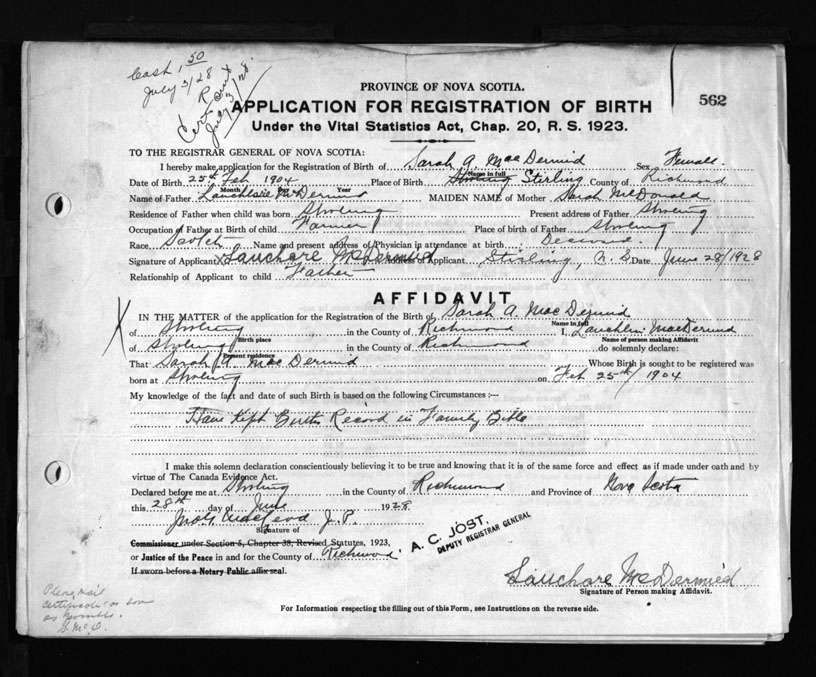 Cash 1.50
July 3/28
R
Cert sent
July 3/28.
562
PROVINCE OF NOVA SCOTIA.
APPLICATION FOR REGISTRATION OF BIRTH
Under the Vital Statistics Act, Chap. 20, R. S. 1923.
TO THE REGISTRAR GENERAL OF NOVA SCOTIA:
I hereby make application for the Registration of Birth of Sarah A. MacDermid Sex Female
Name in full
Date of Birth 25th Feb 1904 Place of Birth Stirling County of Richmond
Month Day Year
Name of Father MAIDEN NAME of Mother Sarah McDonald
Residence of Father when child was born Present address of Father
Occupation of Father at birth of child Farmer Place of birth of Father
Race Scotch Name and present address of Physician in attendance at birth
Signature of Applicant Lauchare McDermid Address of Applicant Stirling, N. S Date June 28/1928
Relationship of Applicant to child Father
AFFIDAVIT
IN THE MATTER of the application for the Registration of the Birth of Sarah A. MacDermid
Name in full
of in the County of Richmond I, Lauchlin MacDermid
Birth place Name of person making Affidavit
of in the County of Richmond do solemnly declare:
Present residence
That Sarah A. MacDermid Whose Birth is sought to be registered was
born at on Feb 25th / 1904
My knowledge of the fact and date of such Birth is based on the following Circumstances :—
Have Kept Births Record in Family Bible
I make this solemn declaration conscientiously believing it to be true and knowing that it is of the same force and effect as if made under oath and by
virtue of The Canada Evidence Act.
Declared before me at in the County of Richmond and Province of Nova Scotia
this 28th day of June 1928.
J. P.
Signature of
Commissioner under Section 5, Chapter 38, Revised Statutes, 1923,
or Justice of the Peace in and for the County of Richmond
If sworn before a Notary Public affix seal.
A. C. JOST,
DEPUTY REGISTRAR GENERAL
Lauchare McDermid
Signature of Person making Affidavit.
Please mail
certificate as soon
as possible.
For Information respecting the filling out of this Form, see Instructions on the reverse side.